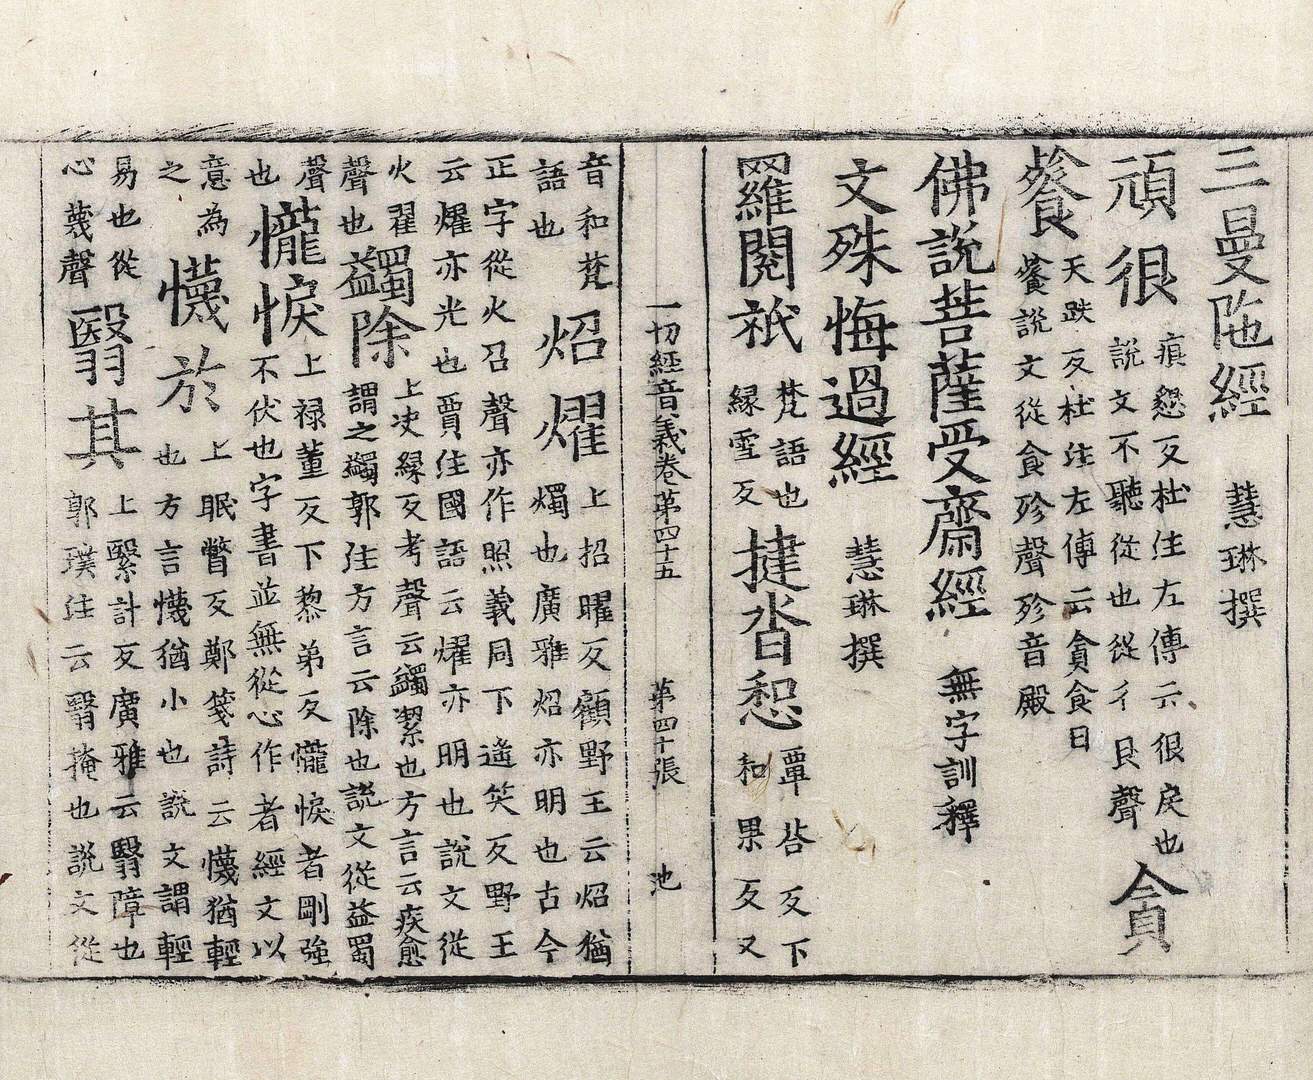 三曼陁經　慧琳撰
頑很
痕懇反杜注左傳云很戾也
說文不聽從也從彳艮聲
貪
餮
天跌反杜注左傳云貪食曰
餮說文從食殄聲殄音殿
佛說菩薩受齋經　無字訓釋
文殊悔過經　慧琳撰
羅閱祇
梵語也
緣雪反
揵沓惒
覃荅反下
和果反又
一切經音義卷第四十五　第四十張　池
音和梵
語也
炤燿
上招曜反顧野王云炤猶
燭也廣雅炤亦明也古今
正字從火召聲亦作照義同下遙笑反野王
云燿亦光也賈注國語云燿亦明也說文從
火翟
聲也
蠲除
上决緣反考聲云蠲潔也方言云疾愈
謂之蠲郭注方言云除也說文從益蜀
聲
也
㦕悷
上祿董反下黎弟反㦕悷者剛強
不伏也字書並無從心作者經文以
意為
之
懱於
上眠瞥反鄭箋詩云懱猶輕
也方言懱猶小也說文謂輕
易也從
心蔑聲
翳其
上繄計反廣雅云翳障也
郭璞注云翳掩也說文從